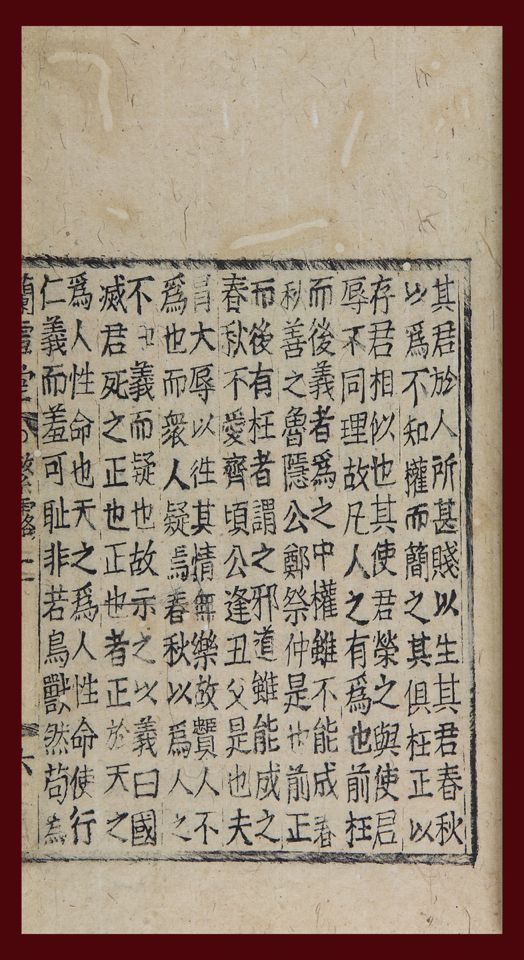 其君於人所甚賤以生其君春秋
以爲不知權而簡之其俱枉正以
存君相似也其使君榮之與使君
辱不同理故凡人之有爲也前枉
而後義者爲之中權雖不能成春
秋善之魯隱公鄭祭仲是也前正
而後有枉者謂之邪道雖能成之
春秋不愛齊頃公逢丑父是也夫
冒大辱以徃其情無樂故賢人不
爲也而衆人疑焉春秋以爲人之
不知義而疑也故示之以義曰國
滅君死之正也正也者正於天之
爲人性命也天之爲人性命使行
仁義而羞可耻非若鳥獸然苟為
蘭雪堂 繁露二 六